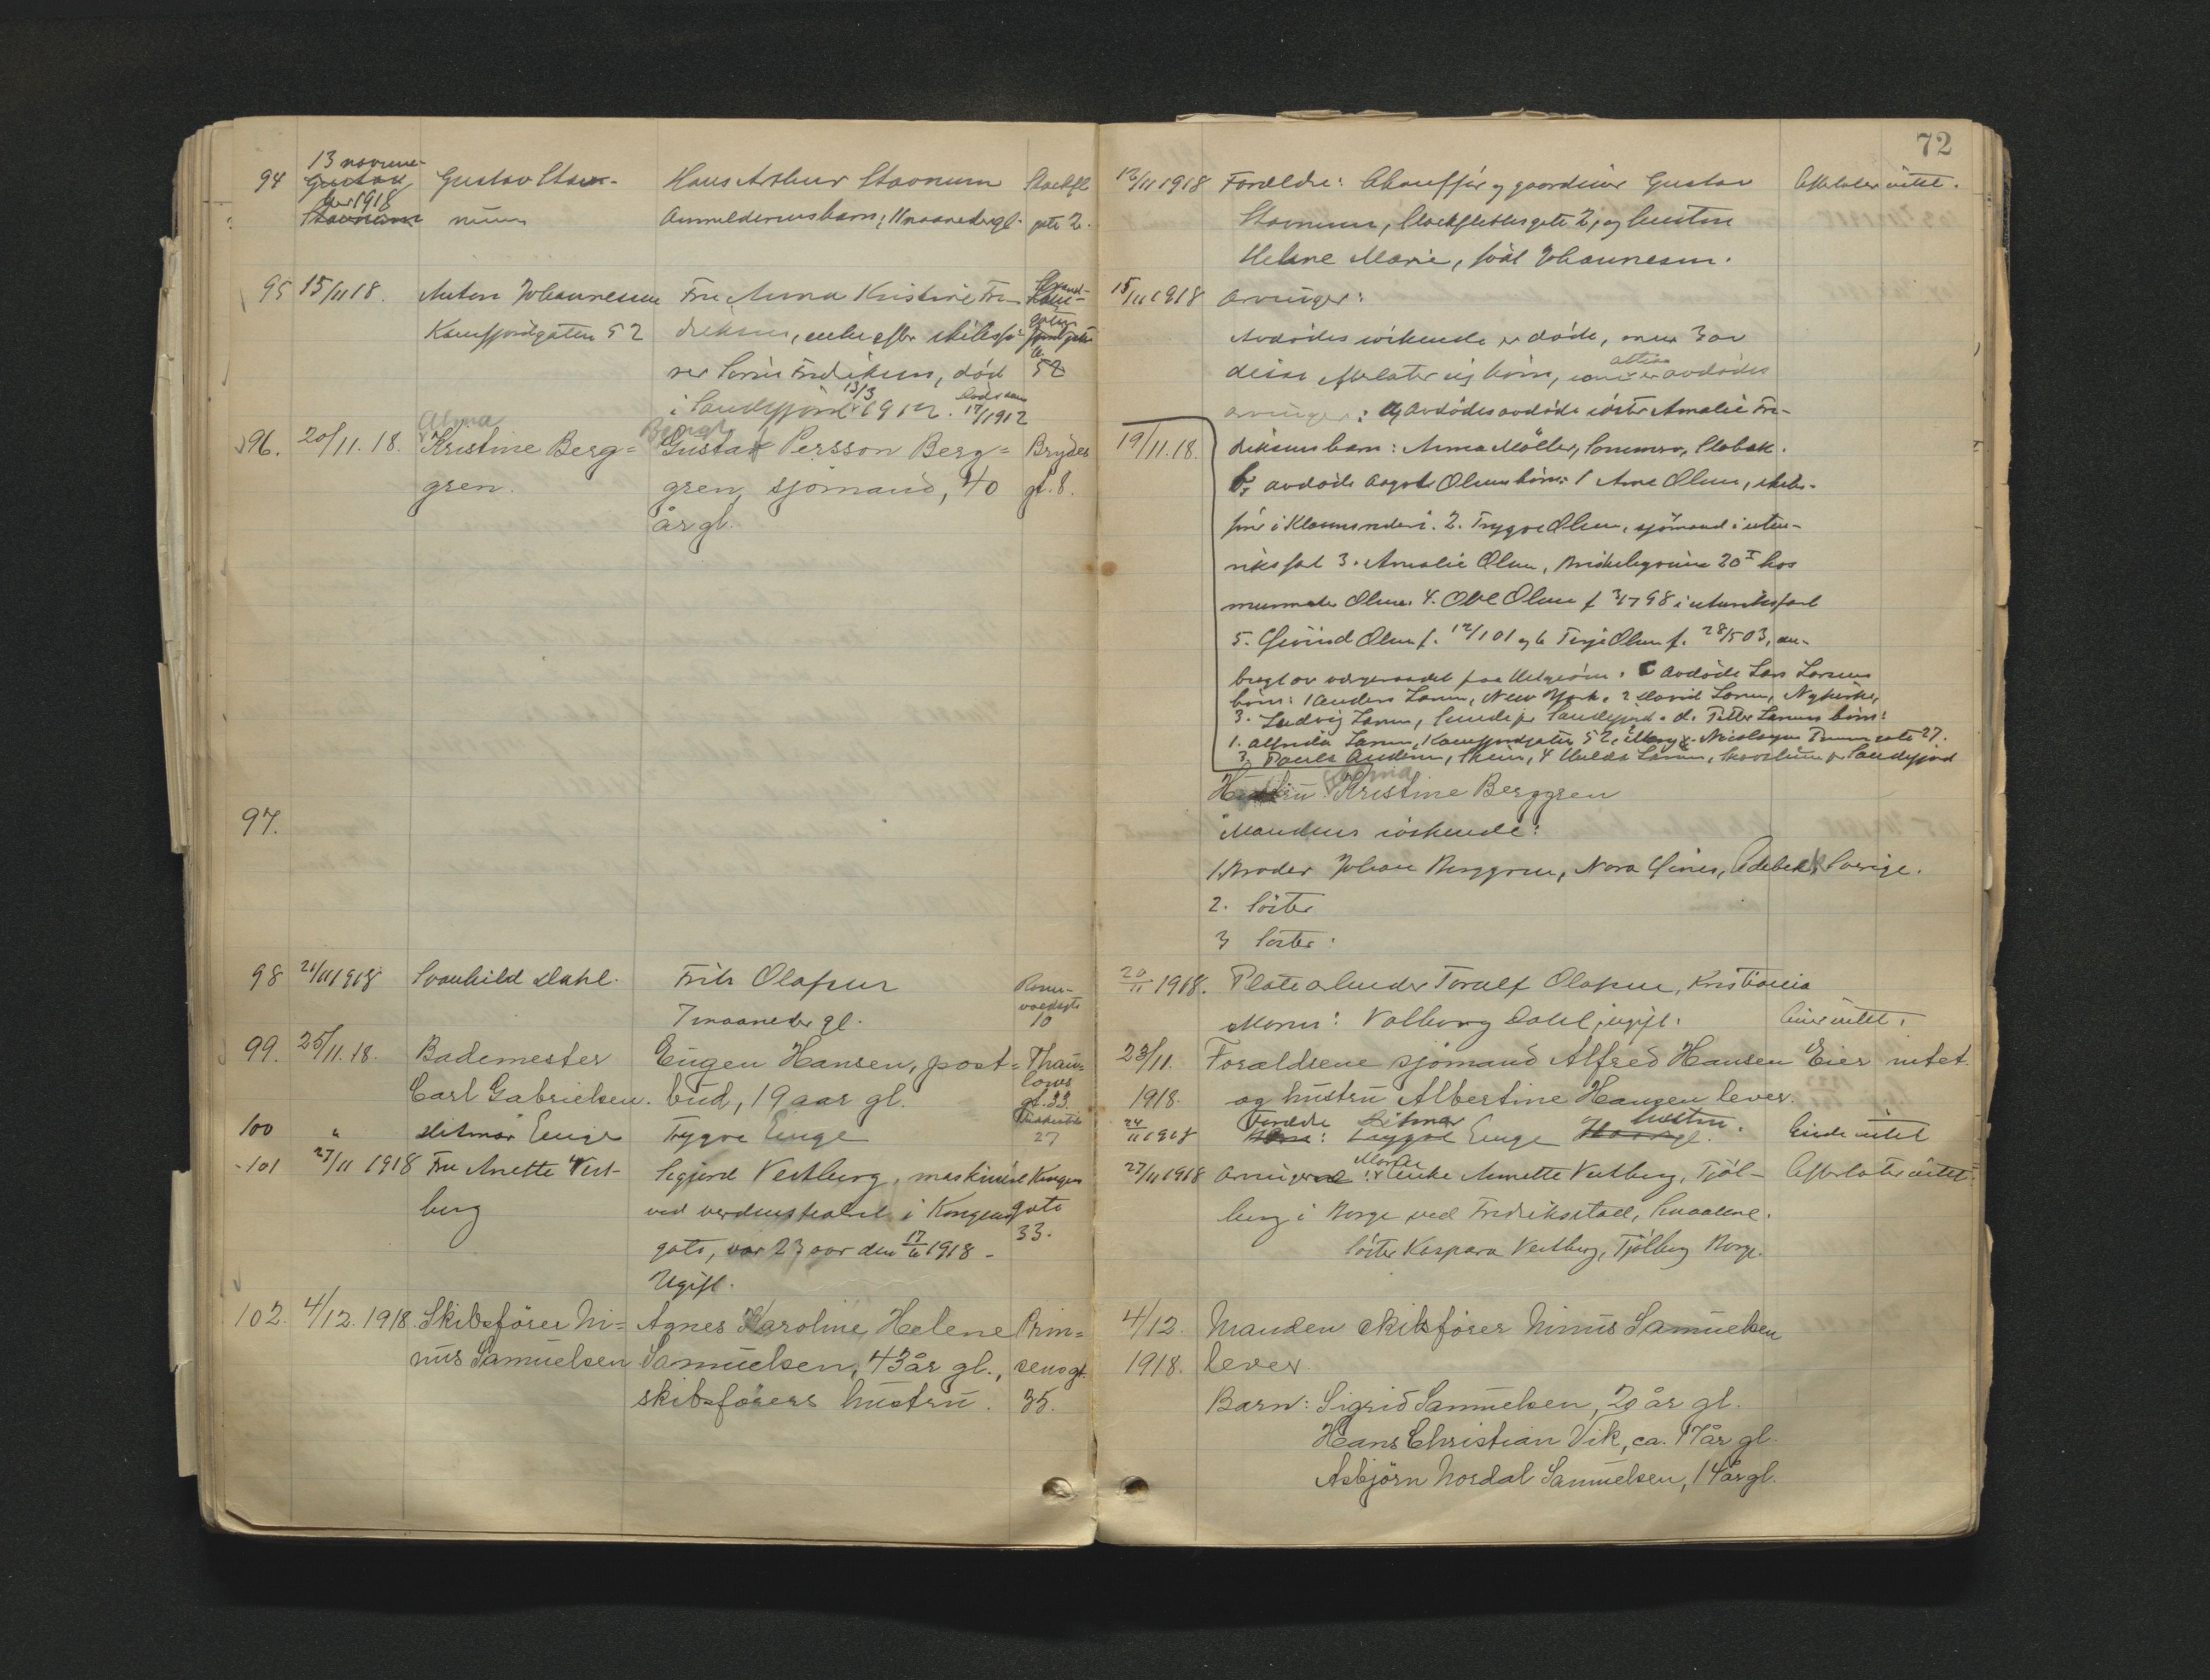 72
94
13 novem-
ber 1918
Gustav
Stavnum
Gustav Stav-
num
Hans Arthur Stavnum
Anmelderens barn, 11 maaneder gl.
Stockfl
gate 2.
12/11 1918 Forældre: Chauffør og gaardeier Gustav
Stavnum, Stockflethsgate 2, og hustru
Helene Marie, født Johannesen.
Efterlater intet.
95 15/11 18.
Anton Johannesen
Kamfjordgaten 52
Fru Anna Kristine Fre-
driksen, enke efter skibsfø-
rer Søren Fredriksen, død
i Sandefjord 13/3 1912.
17/1912
52
15/11 1918 Arvinger:
Avdødes søskende er døde, men 3 av
disse efterlater sig børn, som er avdødes
arvinger: a) avdødes avdøde søster Amalie Fre-
driksens barn: Anna Möller, Sommero, Slabak.
b, avdøde Aagot Olsens børn: 1 Arne Olsen, skibs-
fører i Klaveness rederi. 2. Trygve Olsen, sjömand i uten-
riksfart 3. Amalie Olsen, 20 I hos
mormor Olsen 4. Ole Olsen f. 3/7 98 i utenriksfart
5. Eivind Olsen f. 12/1 01 og 6 Terje Olsen f. 28/5 03, an-
bragt av vergeraadet paa Helgeøen. C avdøde Lars Larsens
børn: 1 Anders Larsen, New York. 2 David Larsen, Nykirke,
3. Ludvig Larsen, Sunde pr Sandefjord. d. Petter Larsens børn:
1. Alfrida Larsen, Kamfjordgaten 52, Nicolaysen gate 27.
3. Paula Andersen, Skien, 4 Hulda Larsen, pr Sandefjord
96. 20/11. 18.
Alma
Kristine Berg=
gren.
Bengt
Gustaf Persson Berg=
gren, sjömand, 40
år gl.
Brydes
gt. 8.
19/11. 18.
Alma
Hustru Kristine Berggren
97.
Mandens søskende:
1. Broder Johan Berggren, Nora Sverige.
2. Søster
3 Søster:
98 21/11 1918 Svanhild Dahl.
Frits Olafsen
7 maaneder gl.
10
20/11 1918. Platearbeider Toralf Olafsen, Kristiania
Moren: Valborg Dahl, ugift.
Eier intet.
99. 25/11. 18. Bademester
Carl Gabrielsen.
Eugen Hansen, post=
bud, 19 aar gl.
Thau=
lows
gt. 33.
23/11.
1918.
Forældrene sjömand Alfred Hansen
og hustru Albertine Hansen lever.
Eier intet.
100 " Ditmar Enge Trygve Enge
27
24/11 1918 Forældre Ditmar Enge hustru.
Eiende intet
101 27/11 1918 Fru Anette Vest-
berg
Sigjord Vestberg, maskinist
ved verdensteatret i Kongens
gate, var 23 aar den 17/6 1918 -
Ugift.
Kongens
gate
33.
27/11 1918 Arvinger: Moder enke Annette Vestberg, Tjöl-
berg i Borge ved Fredriksstad, Smaalene.
Søster Kaspara Vestberg, Tjölberg Borge.
Efterlater intet.
102. 4/12. 1918 Skibsfører Ni=
nus Samuelsen
Agnes Karoline Helene
Samuelsen, 43 år gl.,
skibsförers hustru.
Prin=
sensgt.
35.
4/12.
1918.
Manden skibsfører Ninus Samuelsen
lever.
Barn: Sigrid Samuelsen, 20 år gl.
Hans Christian Vik, ca. 17 år gl.
Asbjörn Nordal Samuelsen, 14 år gl.